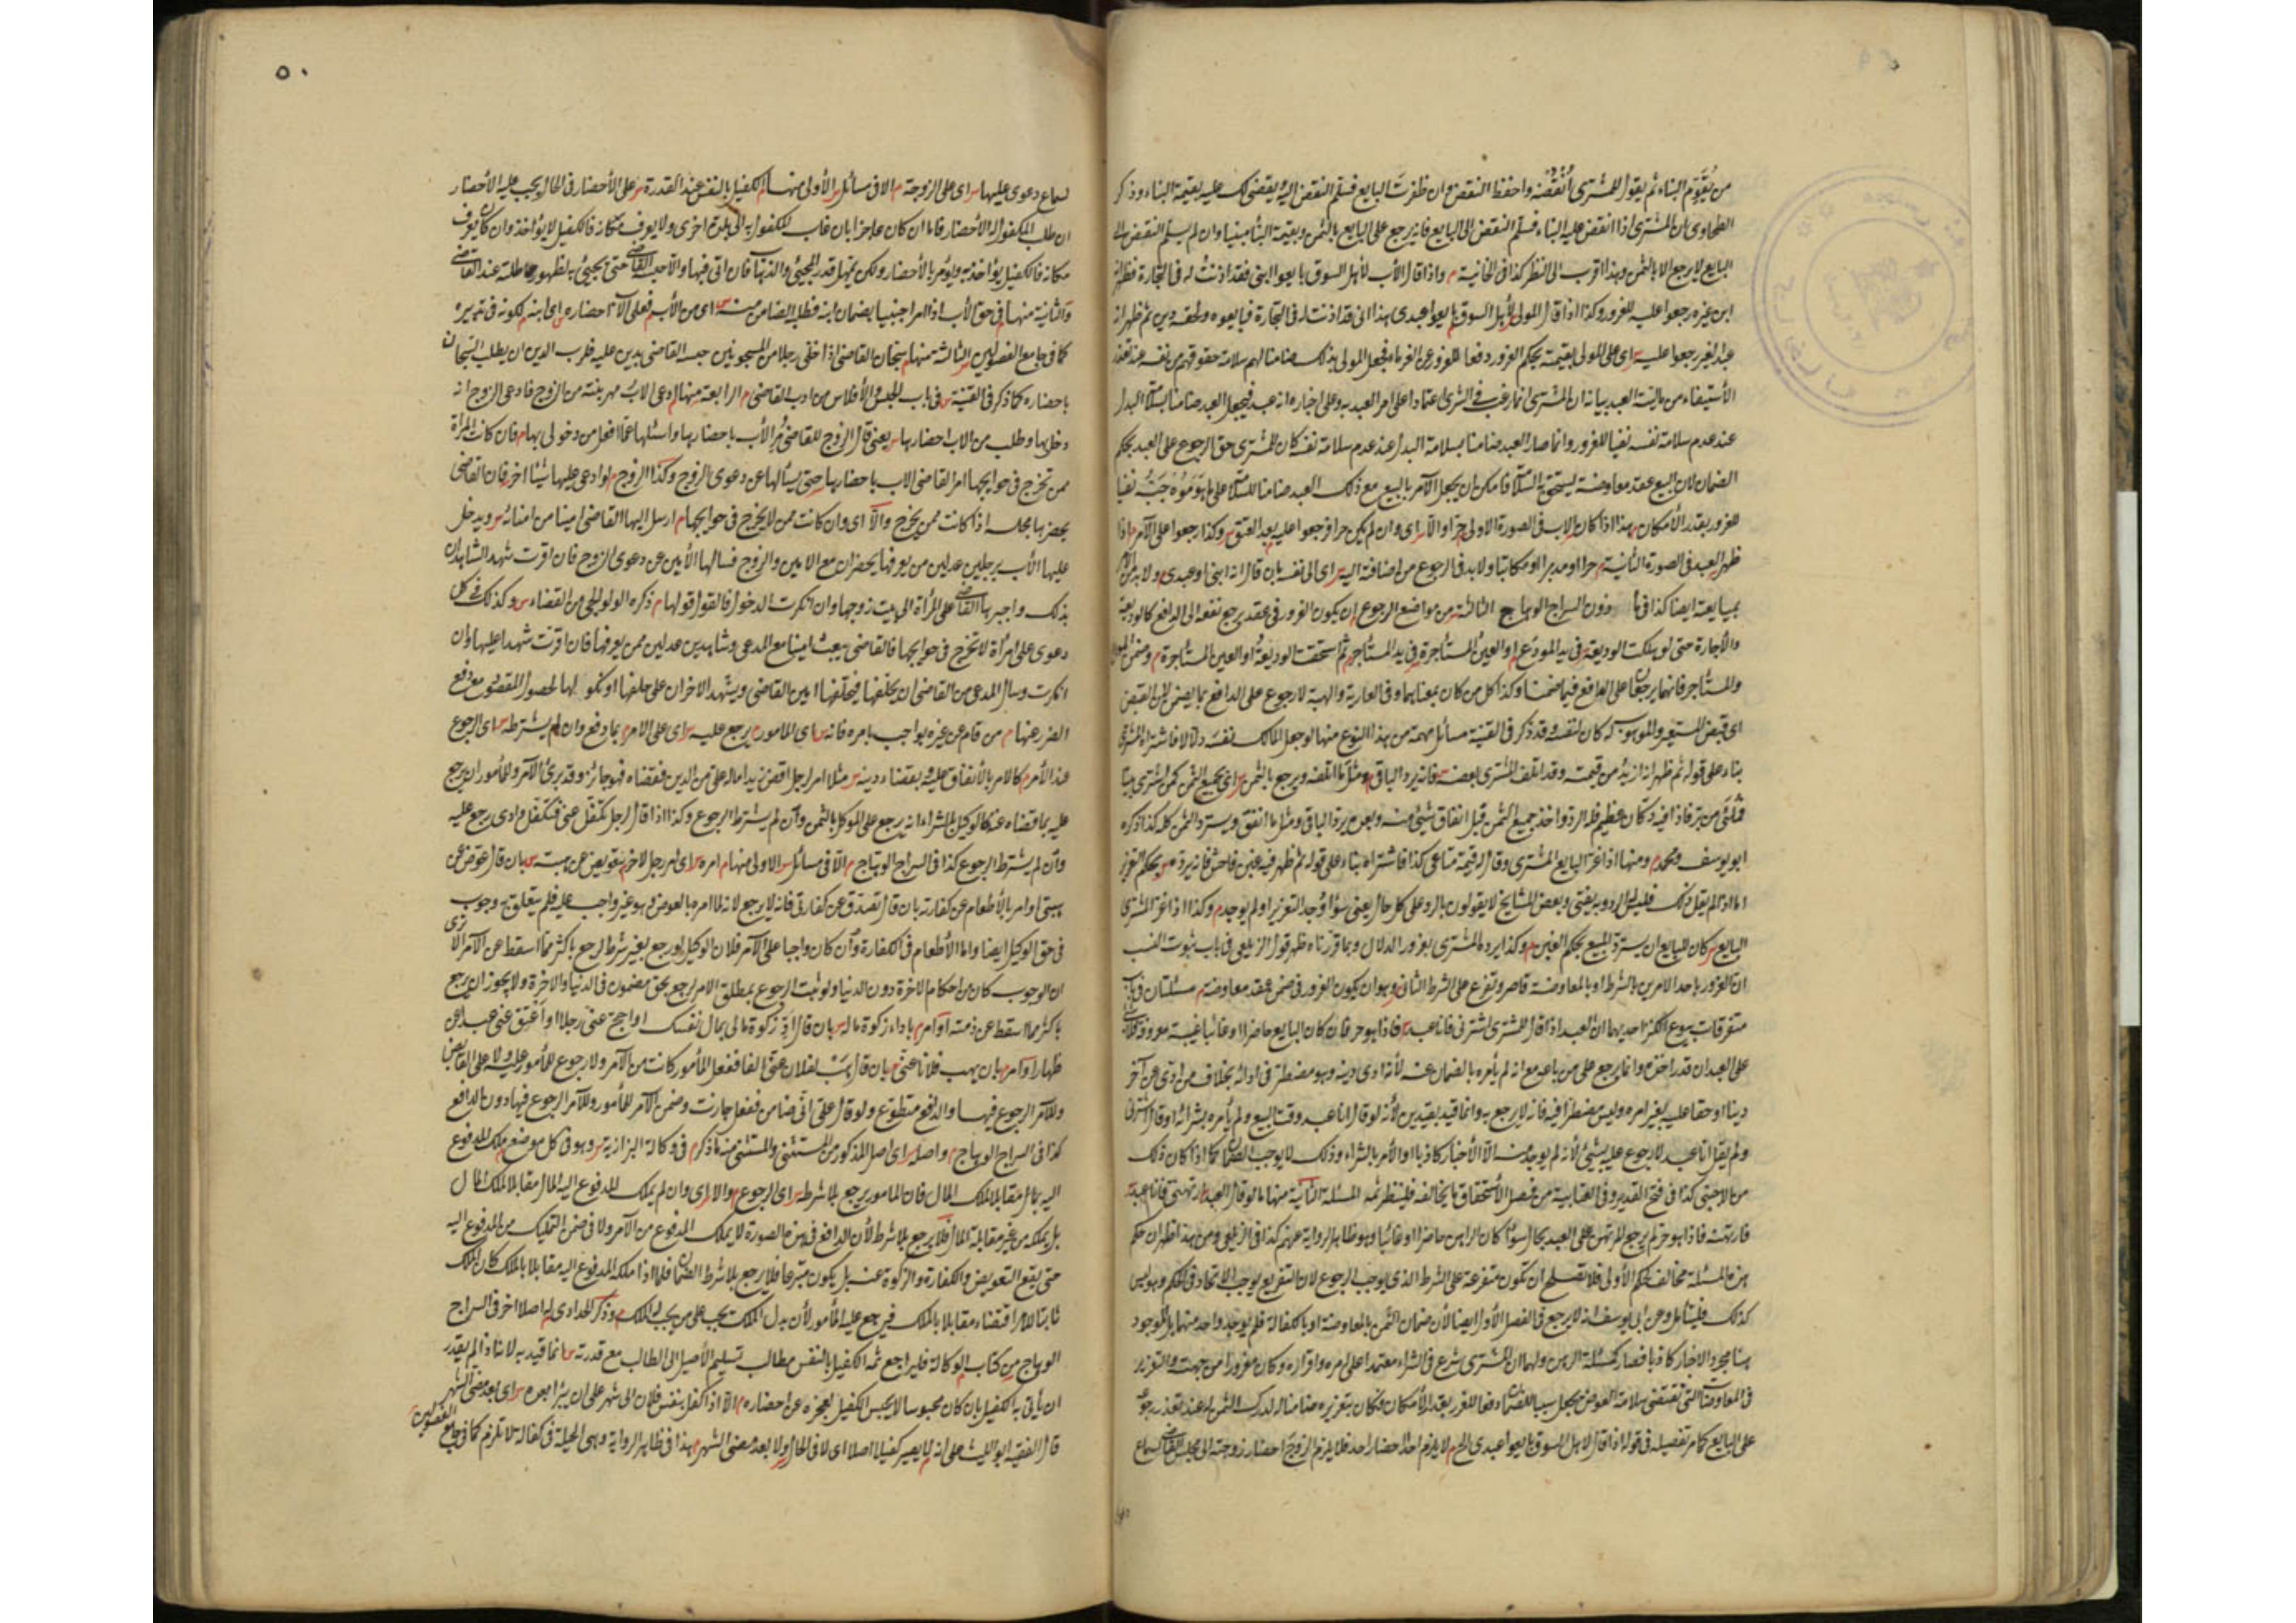 من يقوم البناء ثم يقول للمشتري انقضه واحفظ النقض وان ظفرت البايع فسلم النقض اليه يقضي لك عليه بقيمة البناء وذكر
الطحاوي ان المشتري اذا انقض عليه البناء فسلم النقض الى البايع فانه يرجع على البايع بالثمن وبقيمة البناء مبنيا وان لم يسلم النقض الى
البايع لا يرجع الا بالثمن وهذا اقرب الى النظر كذا في الخانية م واذا قال الأب لأهل السوق بايعوا ابني فقد اذنت له في التجارة فظهر انه
ابن غيره رجعوا عليه للغرور وكذا اذا قال المولى لأهل السوق بايعوا عبدي هذا اني قد اذنت له في التجارة فبايعوه ولحقه دين ثم ظهر انه
عبد الغير رجعوا عليه س اى على المولى بقيمته بحكم الغرور دفعا للغرور عن الغرماء فجعل المولى بذلك ضامنا لهم سلامة حقوقهم من نفسه عند تعذر
الأستيفاء من مالية العبد بيانه ان المشتري انما رغب في الشرى اعتمادا على امر العبد به وعلى اخباره انه عبد فيجعل العبد ضامنا بسلامة البدل
عند عدم سلامة نفسه نفيا للغرور وانما صار العبد ضامنا بسلامة البدل عند عدم سلامة نفسه كان للمشتري حق الرجوع على العبد بحكم
الضمان لان البيع عقد معاوضة يستحق به السلامة فامكن ان يجعل الآمر بالبيع مع ذلك العبد ضامنا للسلامة على ما هو موجبه نفيا
للغرور بقدر الأمكان م هذا اذا كان الاب في الصورة الاولى حرا والا س اى وان لم يكن حرا فرجعوا عليه بعد العتق س وكذا رجعوا على الآمر م اذا
ظهر العبد في الصورة الثانية م حرا او مدبرا او مكاتبا ولا بد في الرجوع من اضافته اليه س اى الى نفسه بان قال انه ابني او عبدي ولا بد من الأمر
بمبايعته ايضا كذا في ماذون السراج الوهاج الثالثة من مواضع الرجوع ان يكون الغرور في عقد يرجع نفعه الى الدافع كالوديعة
والأجارة حتى لو هلكت الوديعة في يد المودع م او العين المستأجرة في يد المستأجر م ثم استحقت الوديعة او العين المستأجرة م وضمن المودع
والمستأجر فانهما يرجعان على الدافع فيما ضمنا وكذا كل من كان بمعناهما وفي العارية والهبة لا رجوع على الدافع بما يضمن لان القبض
اى قبض المستعير والموهوب له كان لنفسه وقد ذكر في القنية مسائل مهمة من هذا النوع منها لو جعل المالك نفسه دلالا فاشتراه المشتري
بناء على قوله ثم ظهر انه ازيد من قيمته وقد اتلف المشتري بعضه فانه يرد الباقي ومثل ما اتلفه ويرجع بالثمن س اى بجميع الثمن كمن اشترى بيتا
ابو يوسف ومحمد م ومنها اذا غر البايع المشتري وقال قيمة متاعي كذا فاشتراه بناء على قوله ثم ظهر فيه غبن فاحش فانه يرده م بحكم الغرر
اما اذا لم يقل ذلك فليس له الرد وبه يفتى وبعض المشايخ لا يقولون بالرد على كل حال يعني سواء وجد التغرير او لم يوجد م وكذا اذا غر المشتري
البايع كان للبايع ان يسترد المبيع بحكم الغبن م وكذا يرد المشتري بغرور الدلال وبما قررناه ظهر قول الزيلعي في باب ثبوت النسب
ان الغرور باحد الامرين بالشرط او بالمعاوضة قاصر وتفرع على الشرط الثاني وهو ان يكون الغرور في ضمن عقد معاوضة م مسئلتان في
متفرقات بيوع الكنز احديهما ان العبد اذا قال للمشتري اشترني فانا عبد فاذا هو حر فان كان البايع حاضرا او غائبا غيبة معروفة
على العبد ان قدر اخذه وانما يرجع على من باعه مع انه لم يأمره بالضمان عنه لأنه ادى دينه وهو مضطر في ادائه بخلاف من ادى عن آخر
دينا او حقا عليه بغير امره وليس مضطرا فيه فانه لا يرجع به وانما قيد بقيدين لأنه لو قال انا عبد وقت البيع ولم يأمره بشرائه او قال اشترني
ولم يقل انا عبد لا رجوع عليه بشيئ لأنه لم يوجد منه الا الأخبار كاذبا او الأمر بالشراء وذلك لا يوجب الضمان كما اذا كان ذلك
من الاجنبي كذا في فتح القدير وفي العتابية من فصل الأستحقاق ما يخالفه فلينظر ثمه المسئلة الثانية منهما ما لو قال العبد ارتهني فانا عبد
فارتهنه فاذا هو حر لم يرجع المرتهن على العبد بحال سواء كان الراهن حاضرا او غائبا وهو ظاهر الرواية عنهم كذا في الزيلعي ومن هذا ظهر ان حكم
هذه المسئلة مخالف لحكم الأولى فلا تصلح ان تكون متفرعة على الشرط الذي يوجب الرجوع لان التفريع يوجب الاتحاد في الحكم وهو ليس
كذلك فليتأمل وعن ابي يوسف انه لا يرجع في الفصل الأول ايضا لأن ضمان الثمن بالمعاوضة او بالكفالة فلم يوجد واحد منهما بل الموجود
هنا مجرد الاخبار كاذبا فصار كمسئلة الرهن ولهما ان المشتري شرع في الشراء معتمدا على امره واقراره وكان مغرورا من جهته والتغرير
في المعاوضات التي تقتضي سلامة العوض يجعل سببا للضمان دفعا للغرر بقدر الأمكان فكان بتغريره ضامنا له لدرك الثمن له عند تعذر رجوعه
على البايع كما مر تفصيله في قوله اذا قال لاهل السوق بايعوا عبدي الخ م لا يلزم احدا احضار احد فلا يلزم الزوج احضار زوجته الى مجلس القاضي لسماع
٥٠
لسماع دعوى عليها س اى على الزوجة م الا في مسائل س الأولى منها م الكفيل بالنفس عند القدرة س على الأحضار في الحال يجب عليه الأحضار
ان طلب المكفول له الأحضار فاما ان كان عاجزا بان غاب المكفول به الى بلدة اخرى ولا يعرف مكانه فالكفيل لا يؤاخذ وان كان يعرف
مكانه فالكفيل يؤاخذ به ويؤمر بالأحضار ولكن يمهل قدر المجيئ والذهاب فان اتى فبها والا حبسه القاضي حتى يجيئ به لظهور مماطلته عند القاضي
والثانية منها في حق الأب اذا امر اجنبيا بضمان ابنه فطلبه الضامن منه س اى من الأب م فعلى الأب احضاره س اى ابنه م لكونه في تدبيره
كما في جامع الفصولين س الثالثة منها م سجان القاضي اذا خلى رجلا من المسجونين حبسه القاضي بدين عليه فلرب الدين ان يطلب السجان
باحضاره كما ذكر في القنية س في باب الحبس والأفلاس من ادب القاضي م الرابعة منها ادعى الاب مهر بنته من الزوج فادعى الزوج انه
دخل بها وطلب من الاب احضارها س يعني قال الزوج للقاضي مر الأب باحضارها واسئلها عما افعل من دخولي بها م فان كانت المرأة
ممن تخرج في حوايجها امر القاضي الاب باحضارها حتى يسألها عن دعوى الزوج وكذا الزوج لو ادعى عليها شيئا اخر فان القاضي
يحضرها مجلسه اذا كانت ممن يخرج والا اى وان كانت ممن لا يخرج في حوايجها م ارسل اليها القاضي امينا من امنائه س ويدخل
عليها الأب برجلين عدلين ممن يعرفها يحضران مع الامين والزوج فسألها الأمين عن دعوى الزوج فان اقرت شهد الشاهدان
بذلك واجبرها القاضي على المرأة الى بيت زوجها وان انكرت الدخول فالقول قولها م ذكره الولوالجي من القضاء س وكذلك في كل
دعوى على امرأة لا تخرج في حوايجها فالقاضي يبعث امينا مع المدعي وشاهدين عدلين ممن يعرفها فان اقرت شهدا عليها وان
انكرت وسأل المدعي من القاضي ان يحلفها فيحلفها امين القاضي ويشهد الاخران على حلفها او نكولها لحصول المقصود مع دفع
الضرر عنها م من قام عن غيره بواجب بامره فانه س اى المأمور م يرجع عليه س اى على الامر م بما دفع وان لم يشترطه س اى الرجوع
عند الأمر م كالامر بالأنفاق عليه وبقضاء دينه س مثلا امر رجل اقض زيدا ماله علي من الدين فقضاه فهو جائز وقد برئ الآمر وللمأمور ان يرجع
عليه بما قضاه عنه كالوكيل بالشراء انه يرجع على الموكل بالثمن وان لم يشترط الرجوع وكذا اذا قال لرجل تكفل عني فتكفل وادى يرجع عليه
وان لم يشترط الرجوع كذا في السراج الوهاج م الا في مسائل س الاولى منها م امره س اى امر رجل لاخر م بتعويض عن هبته س بان قال عوض عن
هبتي او امر بالأطعام عن كفارته بان قال تصدق عن كفارتي فانه لا يرجع لانه لما امره بالعوض وهو غير واجب عليه فلم يتعلق به وجوب
في حق الوكيل ايضا واما الأطعام في الكفارة وان كان واجبا على الآمر فلان الوكيل لو رجع بغير شرط لرجع باكثر مما اسقط عن الآمر الا ترى
ان الوجوب كان من احكام الاخرة دون الدنيا ولو ثبت الرجوع بمطلق الامر لرجع بحق مضمون في الدنيا والاخرة ولا يجوز ان يرجع
باكثر مما اسقط عن ذمته او امره باداء زكوة ماله س بان قال اد زكوة مالي بمال نفسك او احج عني رجلا او اعتق عني عبدا عن
ظهار او امره بان يهب فلانا عني بان قال هب لفلان عني الفا ففعل المأمور كانت من الآمر ولا رجوع للمأمور عليه ولا على القابض
وللآمر الرجوع فيها والدافع متطوع ولو قال علي اني ضامن ففعل جازت وضمن الآمر للمأمور وللآمر الرجوع فيها دون الدافع
كذا في السراج الوهاج م واصله س اى اصل المذكور من المستثنى والمستثنى منه ما ذكره م في وكالة البزازية س وهو في كل موضع يملك المدفوع
اليه المال مقابلا بملك المال فان المأمور يرجع بلا شرط س اى الرجوع م والا س اى وان لم يملك المدفوع اليه المال مقابلا بملك المال
بل يملكه من غير مقابلة المال فلا يرجع بلا شرط لأن الدافع في هذه الصورة لا يملك المدفوع من الآمر ولا في ضمن التمليك من المدفوع اليه
حتى يقع التعويض والكفارة والزكوة عنه بل يكون متبرعا فلا يرجع بلا شرط الضمان فلما اذا ملكه المدفوع اليه مقابلا بالملك كان الملك
ثابتا للامر اقتضاء مقابلا بالملك فيرجع عليه المأمور لأن بدل الملك يجب على من يجب له الملك م وذكر الحدادي له اصلا اخر في السراج
الوهاج من كتاب الوكالة فليراجع ثمه الكفيل بالنفس مطالب بتسليم الأصيل الى الطالب مع قدرته س انما قيد به لانه اذا لم يقدر
ان يأتي به الكفيل بان كان محبوسا لا يحبس الكفيل لعجزه عن احضاره م الا اذا كفل بنفس فلان الى شهر على ان يبرأ بعده س اى بعد مضي الشهر
قال الفقيه ابو الليث على انه لا يصير كفيلا اصلا اى لا في الحال ولا بعد مضي الشهر م هذا في ظاهر الرواية وهي الحيلة في كفالة لا تلزم كما في جامع الفصولين